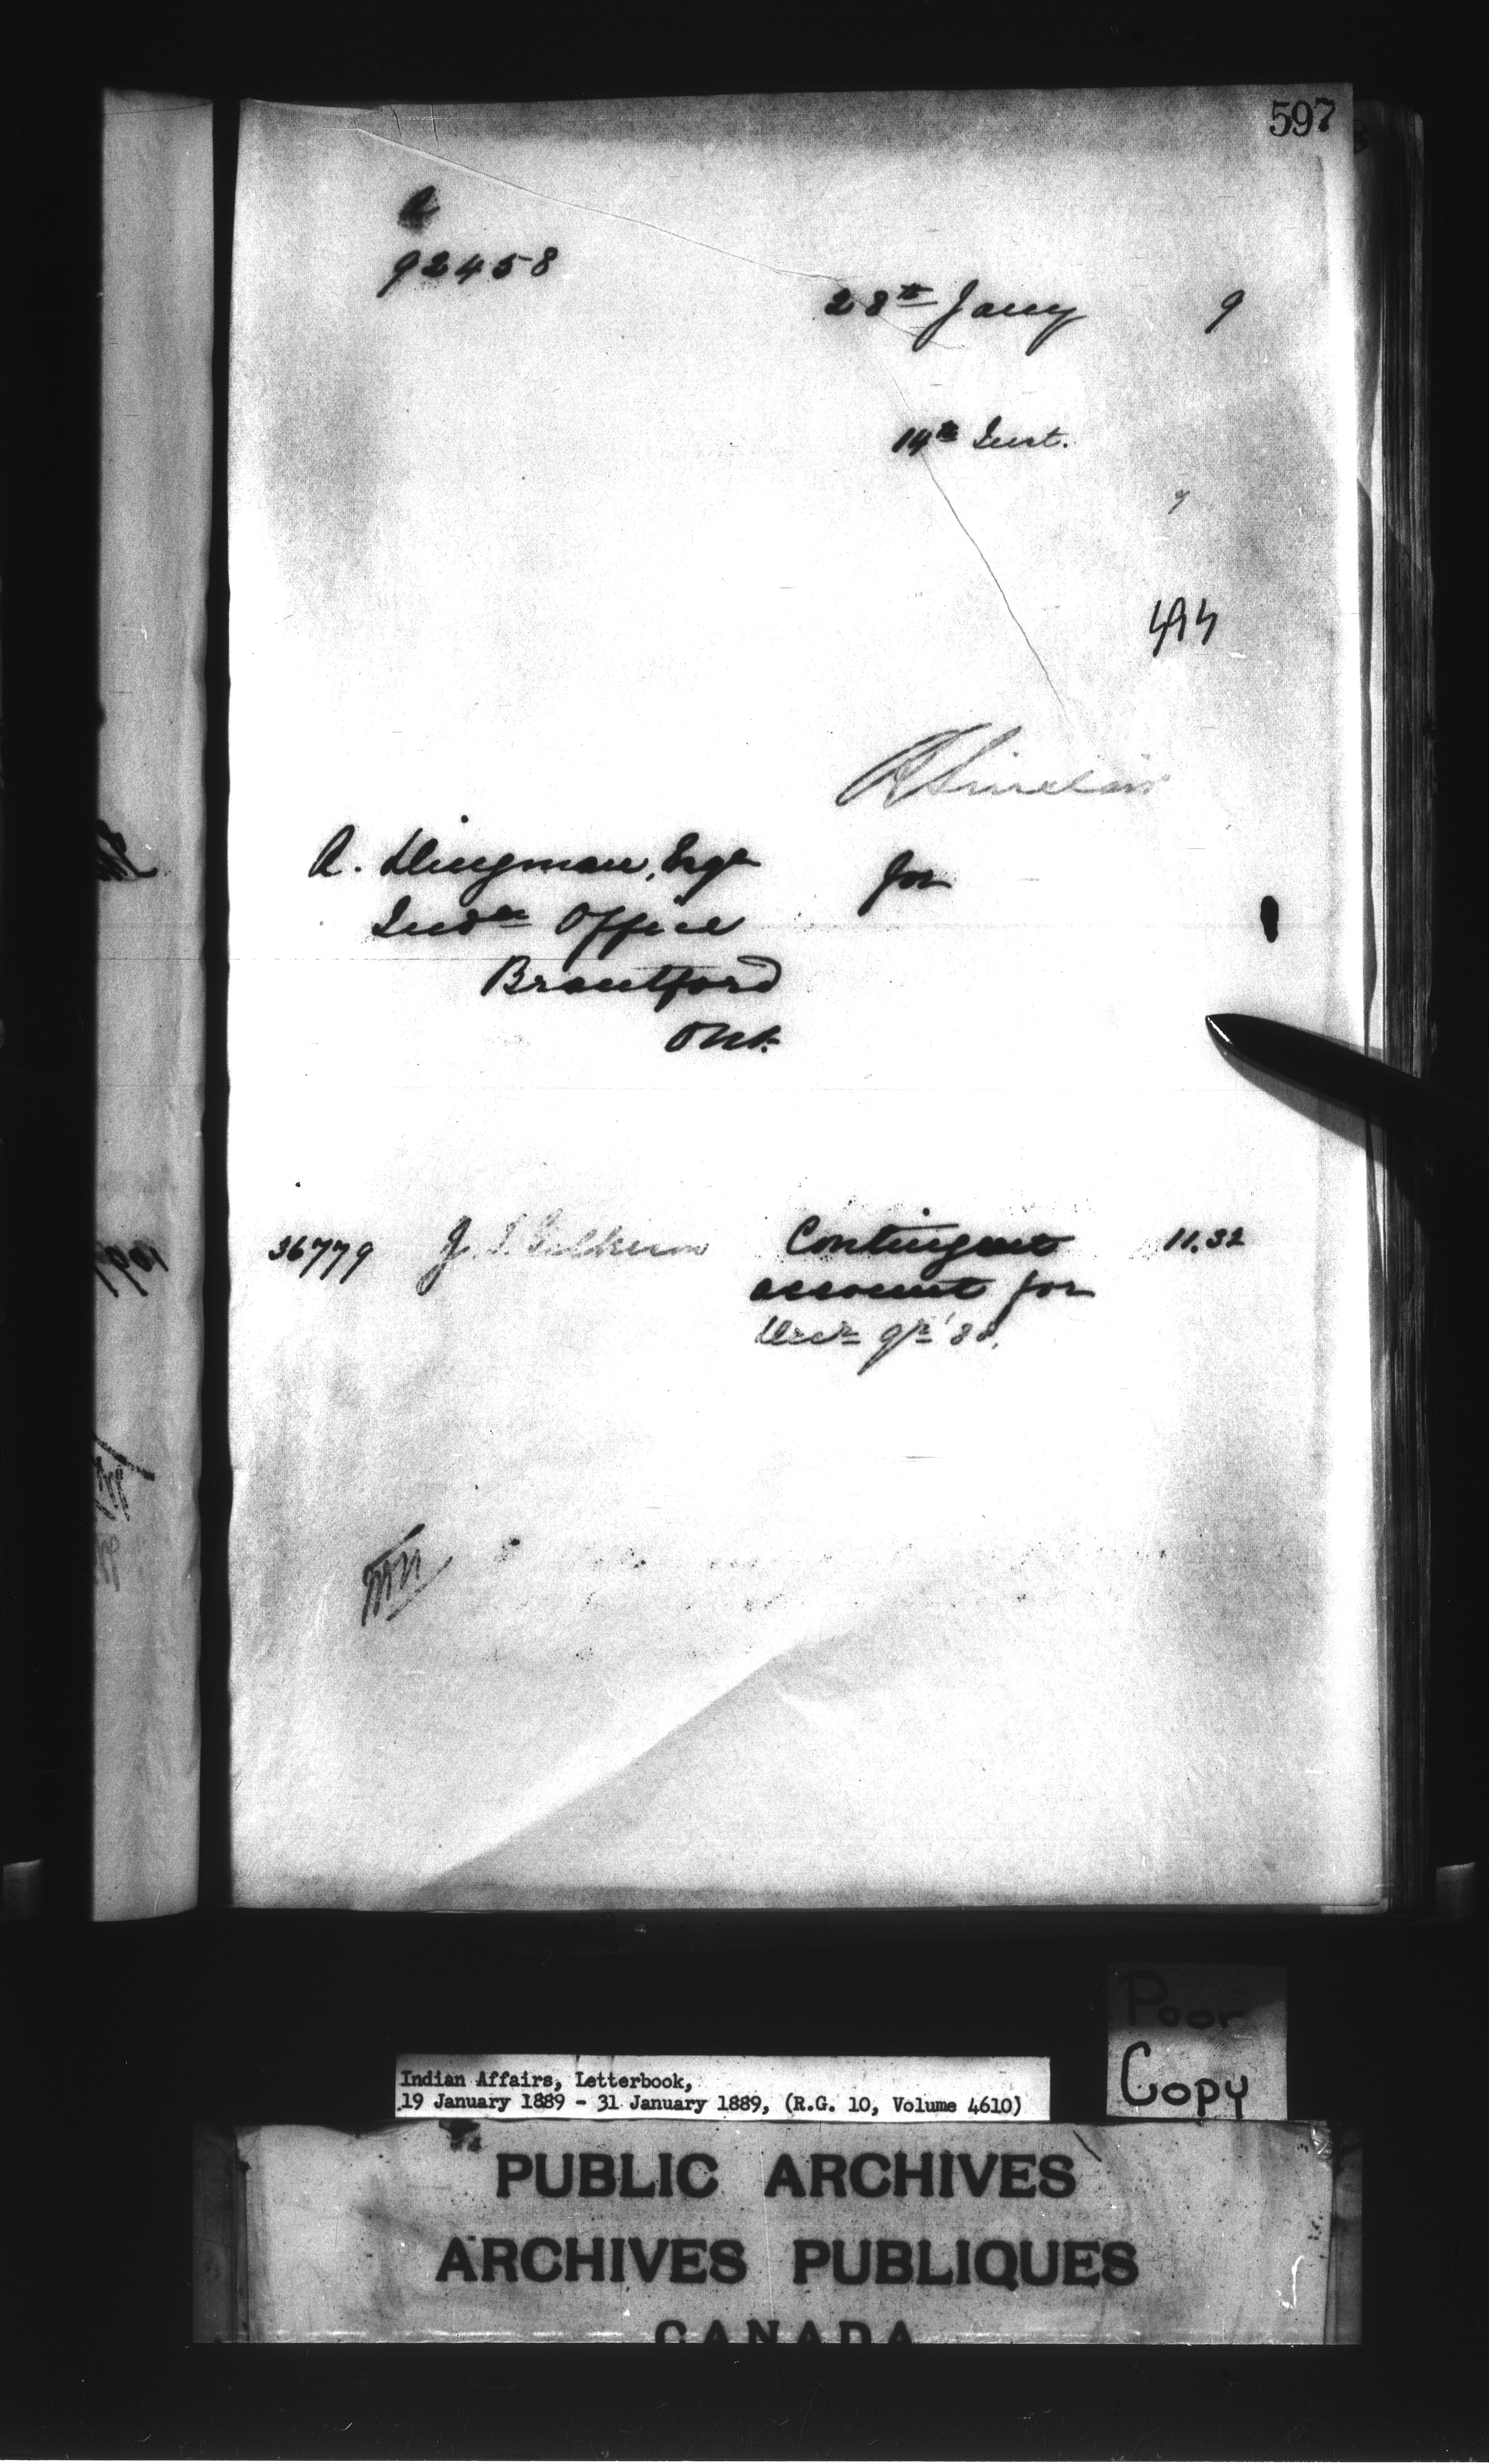 597
A
92458
28th Jany 9
14th Inst.
494
R Sinclair
A. Dingman, Esqr for
Indn Office
Brantford
Ont.
36779 J. T. Gilkison Contingent 11.32
account for
Decr qr '88.
Poor
Copy
Indian Affairs, Letterbook,
19 January 1889 - 31 January 1889, (R.G. 10, Volume 4610)
PUBLIC ARCHIVES
ARCHIVES PUBLIQUES
CANADA